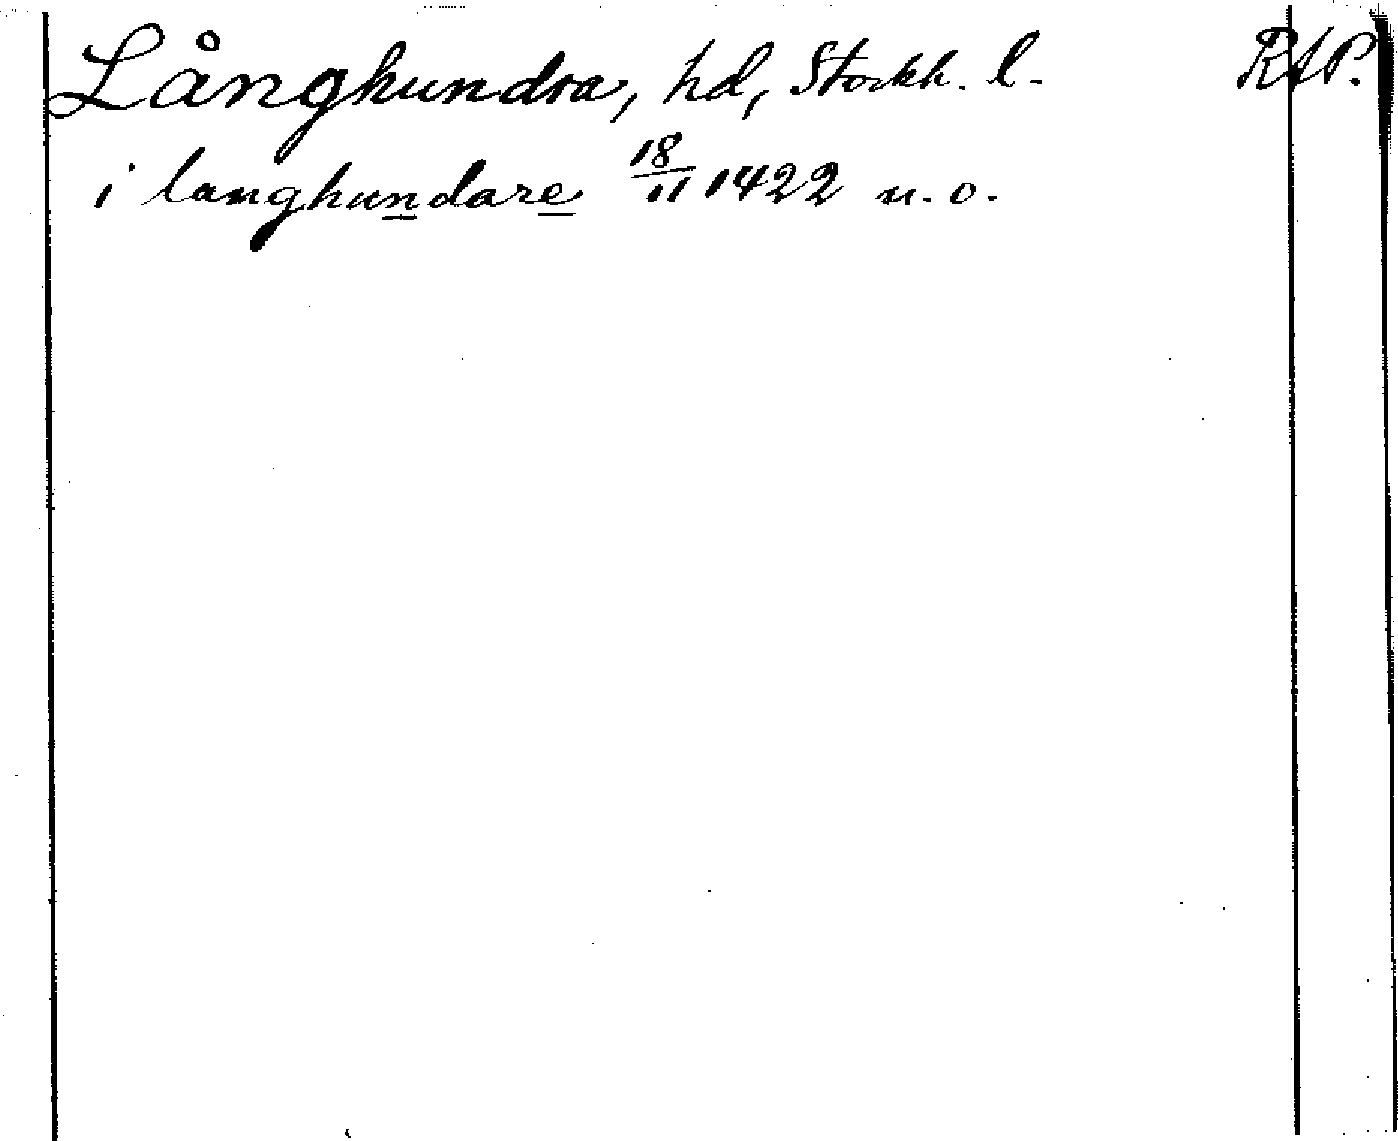 Långhundra, hd, Stockh. l. RAP.
i langhundare 18/11 1422 u. o.